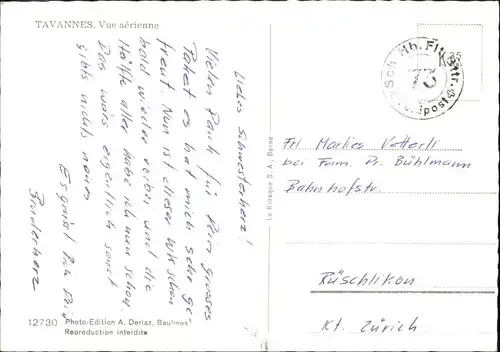 TAVANNES. Vue aérienne
Liebes Schwesterherz!
Vielen Dank für Dein grosses
Paket es hat mich sehr ge-
freut. Nun ist dieser WK schon
bald wieder vorbei und die
Hälfte aller habe ich nun schon.
Das wärs eigentlich sonst
gibts nichts neues
Es grüsst Dich Dein
Bruderherz
12730 Photo-Edition A. Deriaz, Baulmes
Reproduction interdite
Le Kiosque S. A., Berne
Sch. Hb. Flt. Bttr.
73
Feldpost
35
Frl Marlies Vetterli
bei Fam. Dr. Bühlmann
Bahnhofstr.
Rüschlikon
Kt. Zürich